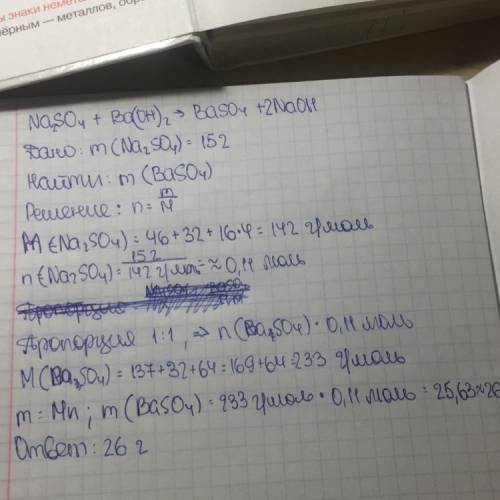 ы знаки немета
чёрным — металлов, обра
Na2SO4 + Ba(OH)2 → BaSO4 + 2NaOH
Дано: m(Na2SO4) = 15г
Найти: m(BaSO4)
Решение: n = m/M
M(Na2SO4) = 46+32+16·4 = 142 г/моль
n(Na2SO4) = 15г/142 г/моль = ≈ 0,11 моль
Пропорция
Пропорция 1:1, ⇒ n(Ba2SO4) · 0,11 моль
M(Ba2SO4) = 137+32+64 = 169+64 = 233 г/моль
m = Mn; m(BaSO4) = 233 г/моль · 0,11 моль = 25,63 ≈ 26
Ответ: 26 г